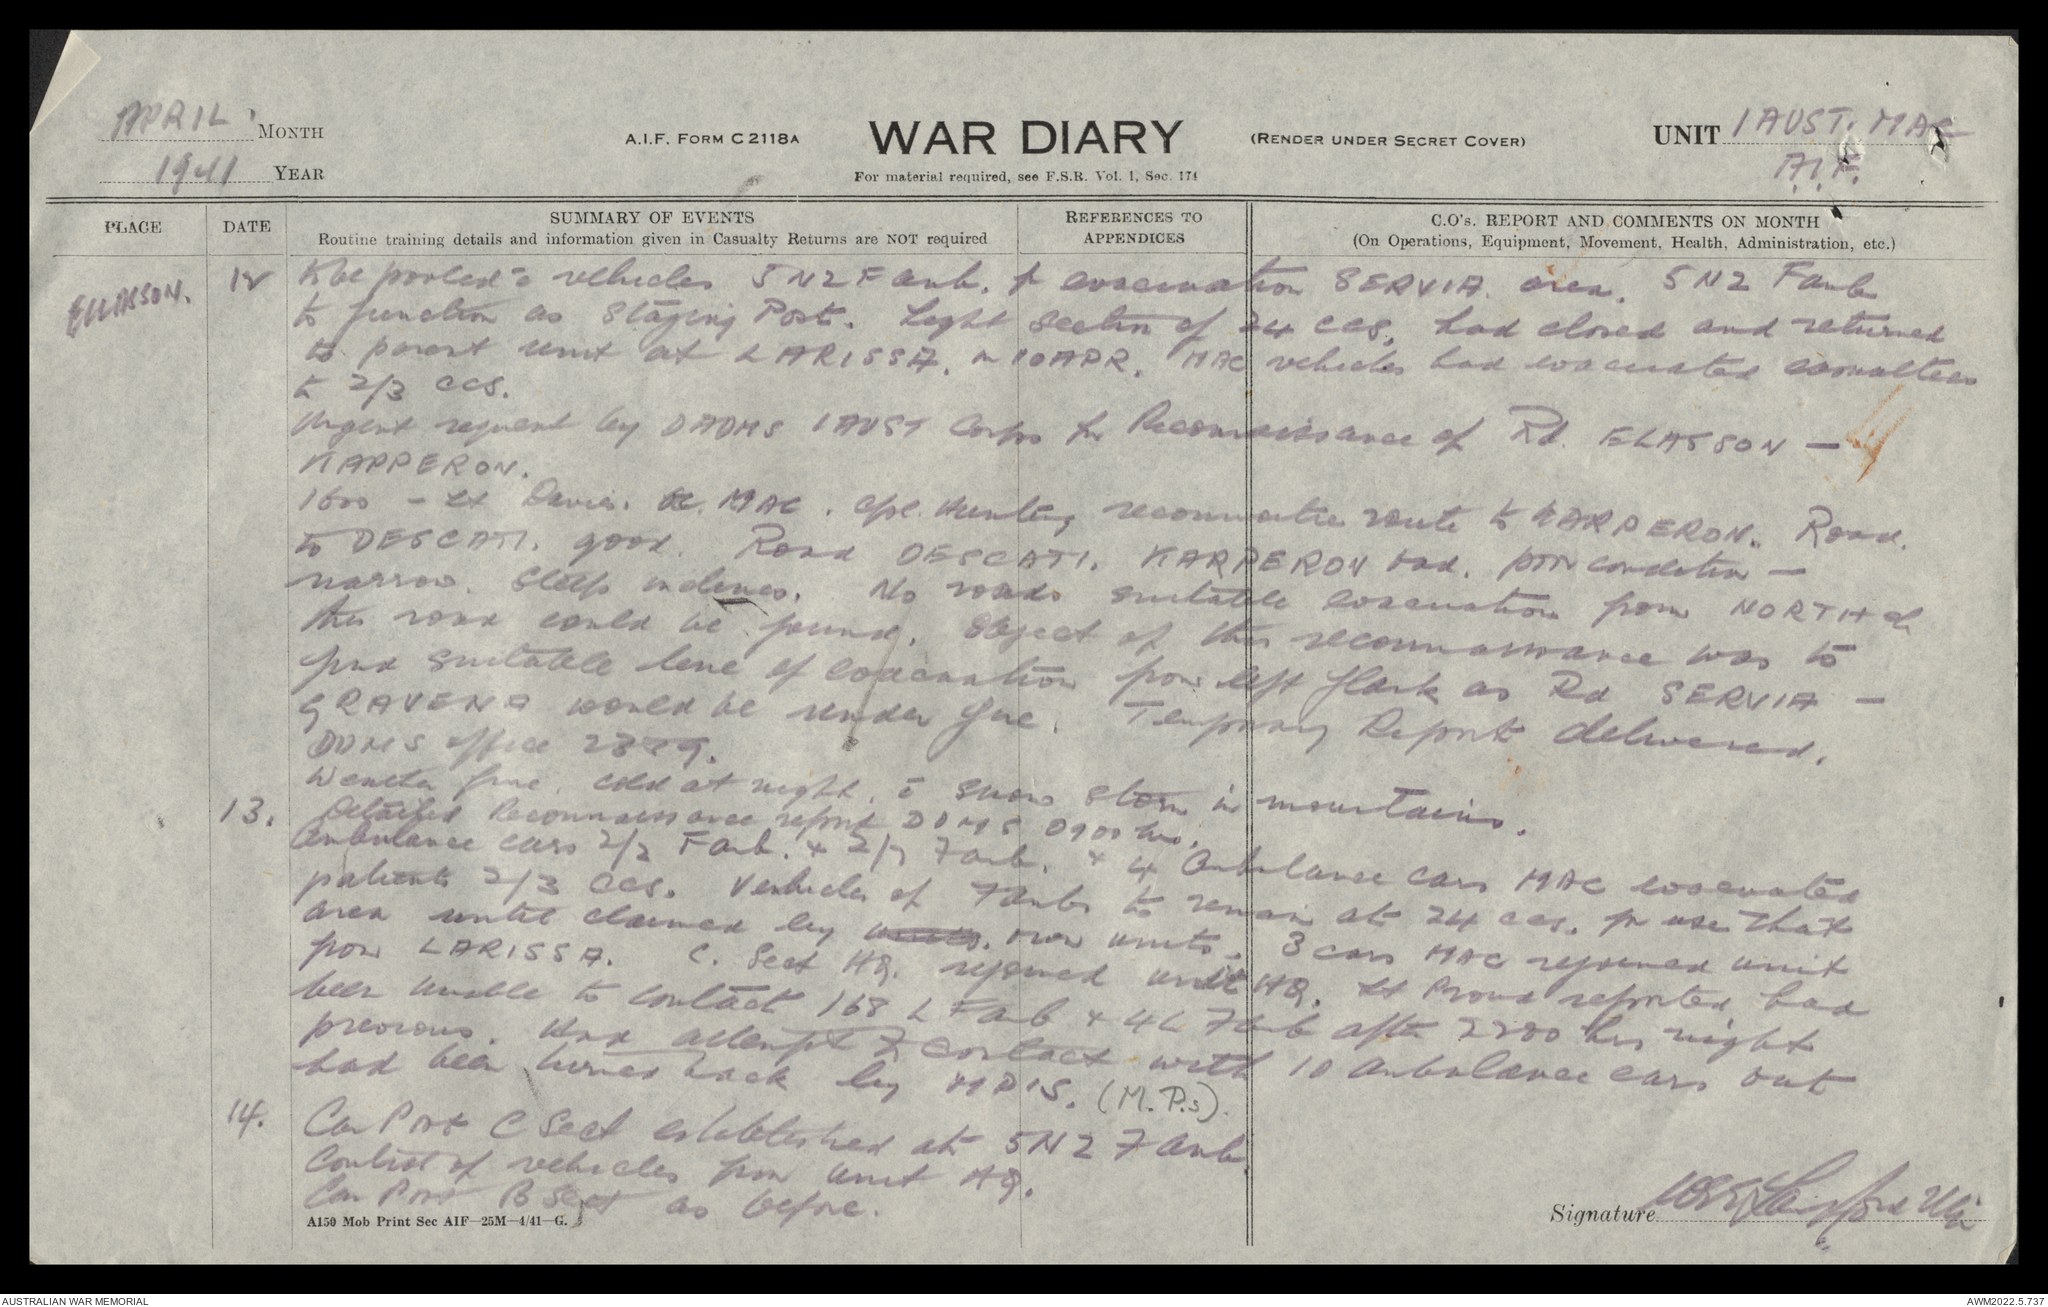 APRIL MONTH
1941 YEAR
A.I.F. FORM C2118A
WAR DIARY
(RENDER UNDER SECRET COVER)
For material required, see F.S.R. Vol. I, Sec. 174
UNIT 1 AUST. MAC
A.I.F.
PLACE
DATE
SUMMARY OF EVENTS
Routine training details and information given in Casualty Returns are NOT required
REFERENCES TO
APPENDICES
C.O's. REPORT AND COMMENTS ON MONTH
(On Operations, Equipment, Movement, Health, Administration, etc.)
ELLASSON. 12 be pooled c vehicles 5 NZ F amb. evacuation SERVIA area. 5 NZ Famb
to function as Staging Post. Light section of 24 CCS. had closed and returned
to parent unit at LARISSA. on 10 APR. MAC vehicles had evacuated casualties
to 2/3 CCS.
Urgent request by DADMS 1 AUST Corps for Reconnaissance of Rd. ELASSON —
KARPERON.
1600 - Lt Davis. MAC. Cpl. Hunting reconnoitre route to KARPERON. Road
to DESCATI. good. Road DESCATI. KARPERON bad. poor condition —
narrow. Steep inclines. No roads suitable evacuation from NORTH of
this road could be found. Object of this reconnaissance was to
find suitable line of evacuation from left flank as Rd SERVIA —
GRAVENA would be under fire. Temporary Report delivered.
DDMS office 2359.
Weather fine. cold at night. c snow storm in mountains.
13. Detailed Reconnaissance report DDMS 0900 hrs.
Ambulance cars 2/2 Famb. + 2/7 Famb. + 4 Ambulance cars MAC evacuated
patients 2/3 CCS. Vehicles of Fambs to remain at 24 CCS. for use that
area until claimed by units. own units. 3 cars MAC rejoined unit
from LARISSA. C. Sect HQ. rejoined unit HQ. Lt Proud reported had
been unable to contact 168 L Famb + 4 L Famb after 2200 hrs night
previous. Had attempt to contact with 10 ambulance cars out
had been turned back by MPIS. (M.P.s).
14. Car Post C Sect established at 5 NZ Famb.
Control of vehicles from unit HQ.
Car Post B Sect as before.
A150 Mob Print Sec AIF—25M—4/41—G.
Signature Langford Maj
AUSTRALIAN WAR MEMORIAL
AWM2022.5.737